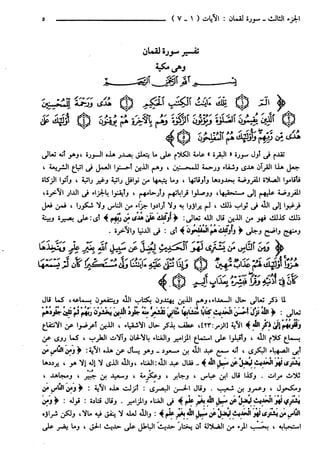 الجزء الثالث - سورة لقمان : الآيات ( ١ - ٧ ) ٥
تفسير سورة لقمان
وهي مكية
بِسْمِ اللَّهِ الرَّحْمَٰنِ الرَّحِيمِ
﴿ الٓمٓ ۝ تِلْكَ ءَايَٰتُ ٱلْكِتَٰبِ ٱلْحَكِيمِ ۝ هُدًى وَرَحْمَةً لِّلْمُحْسِنِينَ
۝ ٱلَّذِينَ يُقِيمُونَ ٱلصَّلَوٰةَ وَيُؤْتُونَ ٱلزَّكَوٰةَ وَهُم بِٱلْءَاخِرَةِ هُمْ يُوقِنُونَ ۝ أُوْلَٰٓئِكَ عَلَىٰ
هُدًى مِّن رَّبِّهِمْ وَأُوْلَٰٓئِكَ هُمُ ٱلْمُفْلِحُونَ ۝ ﴾
تقدم في أول سورة « البقرة » عامة الكلام على ما يتعلق بصدر هذه السورة ، وهو أنه تعالى
جعل هذا القرآن هدى وشفاء ورحمة للمحسنين ، وهم الذين أحسنوا العمل في اتباع الشريعة ،
فأقاموا الصلاة المفروضة بحدودها وأوقاتها ، وما يتبعها من نوافل راتبة وغير راتبة ، وآتوا الزكاة
المفروضة عليهم إلى مستحقيها، ووصلوا قراباتهم وأرحامهم ، وأيقنوا بالجزاء في الدار الآخرة،
فرغبوا إلى الله في ثواب ذلك ، لم يراؤوا به ولا أرادوا جزاء من الناس ولا شكورا ، فمن فعل
ذلك كذلك فهو من الذين قال الله تعالى: ﴿ أُوْلَٰٓئِكَ عَلَىٰ هُدًى مِّن رَّبِّهِمْ ﴾ أي: على بصيرة وبينة
ومنهج واضح وجلي ﴿ وَأُوْلَٰٓئِكَ هُمُ ٱلْمُفْلِحُونَ ﴾ أي : في الدنيا والآخرة .
﴿ وَمِنَ ٱلنَّاسِ مَن يَشْتَرِى لَهْوَ ٱلْحَدِيثِ لِيُضِلَّ عَن سَبِيلِ ٱللَّهِ بِغَيْرِ عِلْمٍ وَيَتَّخِذَهَا
هُزُوًا أُوْلَٰٓئِكَ لَهُمْ عَذَابٌ مُّهِينٌ ۝ وَإِذَا تُتْلَىٰ عَلَيْهِ ءَايَٰتُنَا وَلَّىٰ مُسْتَكْبِرًا كَأَن لَّمْ يَسْمَعْهَا
كَأَنَّ فِىٓ أُذُنَيْهِ وَقْرًا فَبَشِّرْهُ بِعَذَابٍ أَلِيمٍ ۝ ﴾
لما ذكر تعالى حال السعداء، وهم الذين يهتدون بكتاب الله وينتفعون بسماعه، كما قال
تعالى : ﴿ ٱللَّهُ نَزَّلَ أَحْسَنَ ٱلْحَدِيثِ كِتَٰبًا مُّتَشَٰبِهًا مَّثَانِىَ تَقْشَعِرُّ مِنْهُ جُلُودُ ٱلَّذِينَ يَخْشَوْنَ رَبَّهُمْ ثُمَّ تَلِينُ جُلُودُهُمْ
وَقُلُوبُهُمْ إِلَىٰ ذِكْرِ ٱللَّهِ ﴾ الآية [الزمر:٢٣]، عطف بذكر حال الأشقياء ، الذين أعرضوا عن الانتفاع
بسماع كلام الله ، وأقبلوا على استماع المزامير والغناء بالألحان وآلات الطرب ، كما روى عن
أبي الصهباء البكرى ، أنه سمع عبد الله بن مسعود - وهو يسأل عن هذه الآية: ﴿ وَمِنَ ٱلنَّاسِ مَن
يَشْتَرِى لَهْوَ ٱلْحَدِيثِ لِيُضِلَّ عَن سَبِيلِ ٱللَّهِ ﴾ . فقال عبد الله: الغناء، والله الذي لا إله إلا هو ، يرددها
ثلاث مرات . وكذا قال ابن عباس ، وجابر ، وعكرمة ، وسعيد بن جُبَيْر ، ومجاهد ،
ومكحول ، وعمرو بن شعيب . وقال الحسن البصرى : أنزلت هذه الآية : ﴿ وَمِنَ ٱلنَّاسِ مَن
يَشْتَرِى لَهْوَ ٱلْحَدِيثِ لِيُضِلَّ عَن سَبِيلِ ٱللَّهِ بِغَيْرِ عِلْمٍ ﴾ في الغناء والمزامير . وقال قتادة : قوله : ﴿ وَمِنَ
ٱلنَّاسِ مَن يَشْتَرِى لَهْوَ ٱلْحَدِيثِ لِيُضِلَّ عَن سَبِيلِ ٱللَّهِ بِغَيْرِ عِلْمٍ ﴾ : والله لعله لا ينفق فيه مالا، ولكن شراؤه
استحبابه ، بحسب المرء من الضلالة أن يختار حديث الباطل على حديث الحق ، وما يضر على